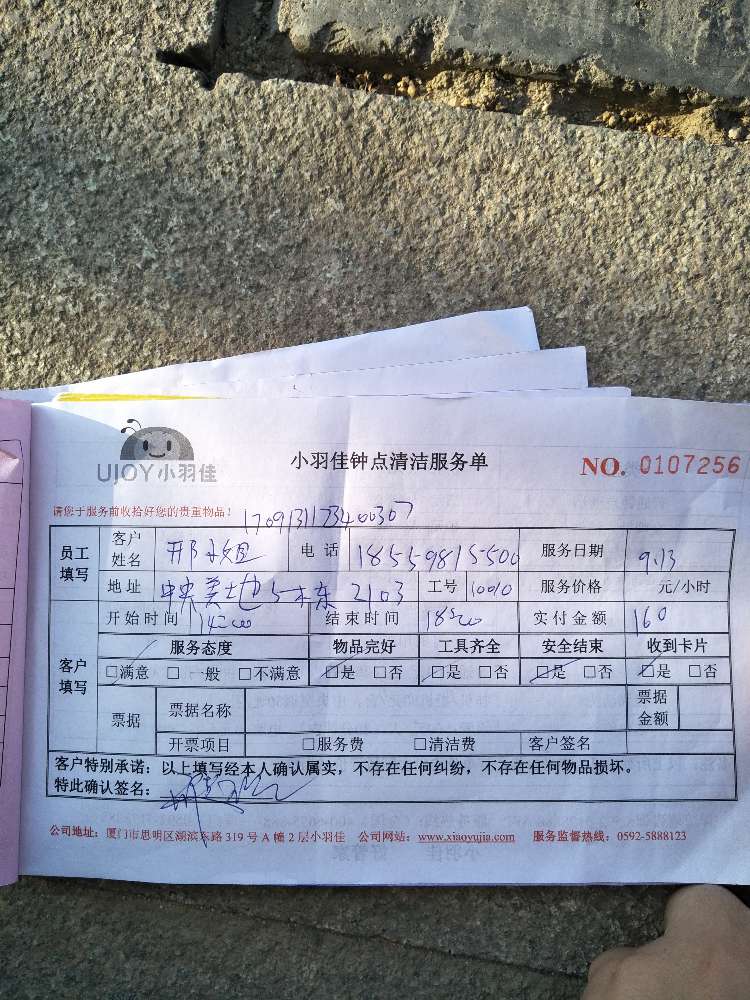 UJOY小羽佳
小羽佳钟点清洁服务单
NO. 0107256
请您于服务前收拾好您的贵重物品！
1709131173400307
员工填写 客户姓名 邢小姐 电话 18559815500 服务日期 9.13
地址 2103 工号 10010 服务价格 元/小时
开始时间 14:00 结束时间 18:00 实付金额 160
客户填写 服务态度 物品完好 工具齐全 安全结束 收到卡片
□满意 □一般 □不满意 □是 □否 □是 □否 □是 □否 □是 □否
票据 票据名称 票据金额
开票项目 □服务费 □清洁费 客户签名
客户特别承诺：以上填写经本人确认属实，不存在任何纠纷，不存在任何物品损坏。
特此确认签名：
公司地址：厦门市思明区湖滨东路 319 号 A 幢 2 层小羽佳 公司网站：www.xiaoyujia.com 服务监督热线：0592-5888123